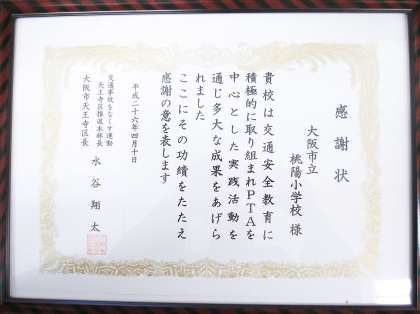 感謝状
大阪市立
桃陽小学校 様
貴校は交通安全教育に
積極的に取り組まれPTAを
中心とした実践活動を
通じ多大な成果をあげら
れました
ここにその功績をたたえ
感謝の意を表します
平成二十六年四月十日
交通事故をなくす運動
天王寺区推進本部長
大阪市天王寺区長
水谷翔太